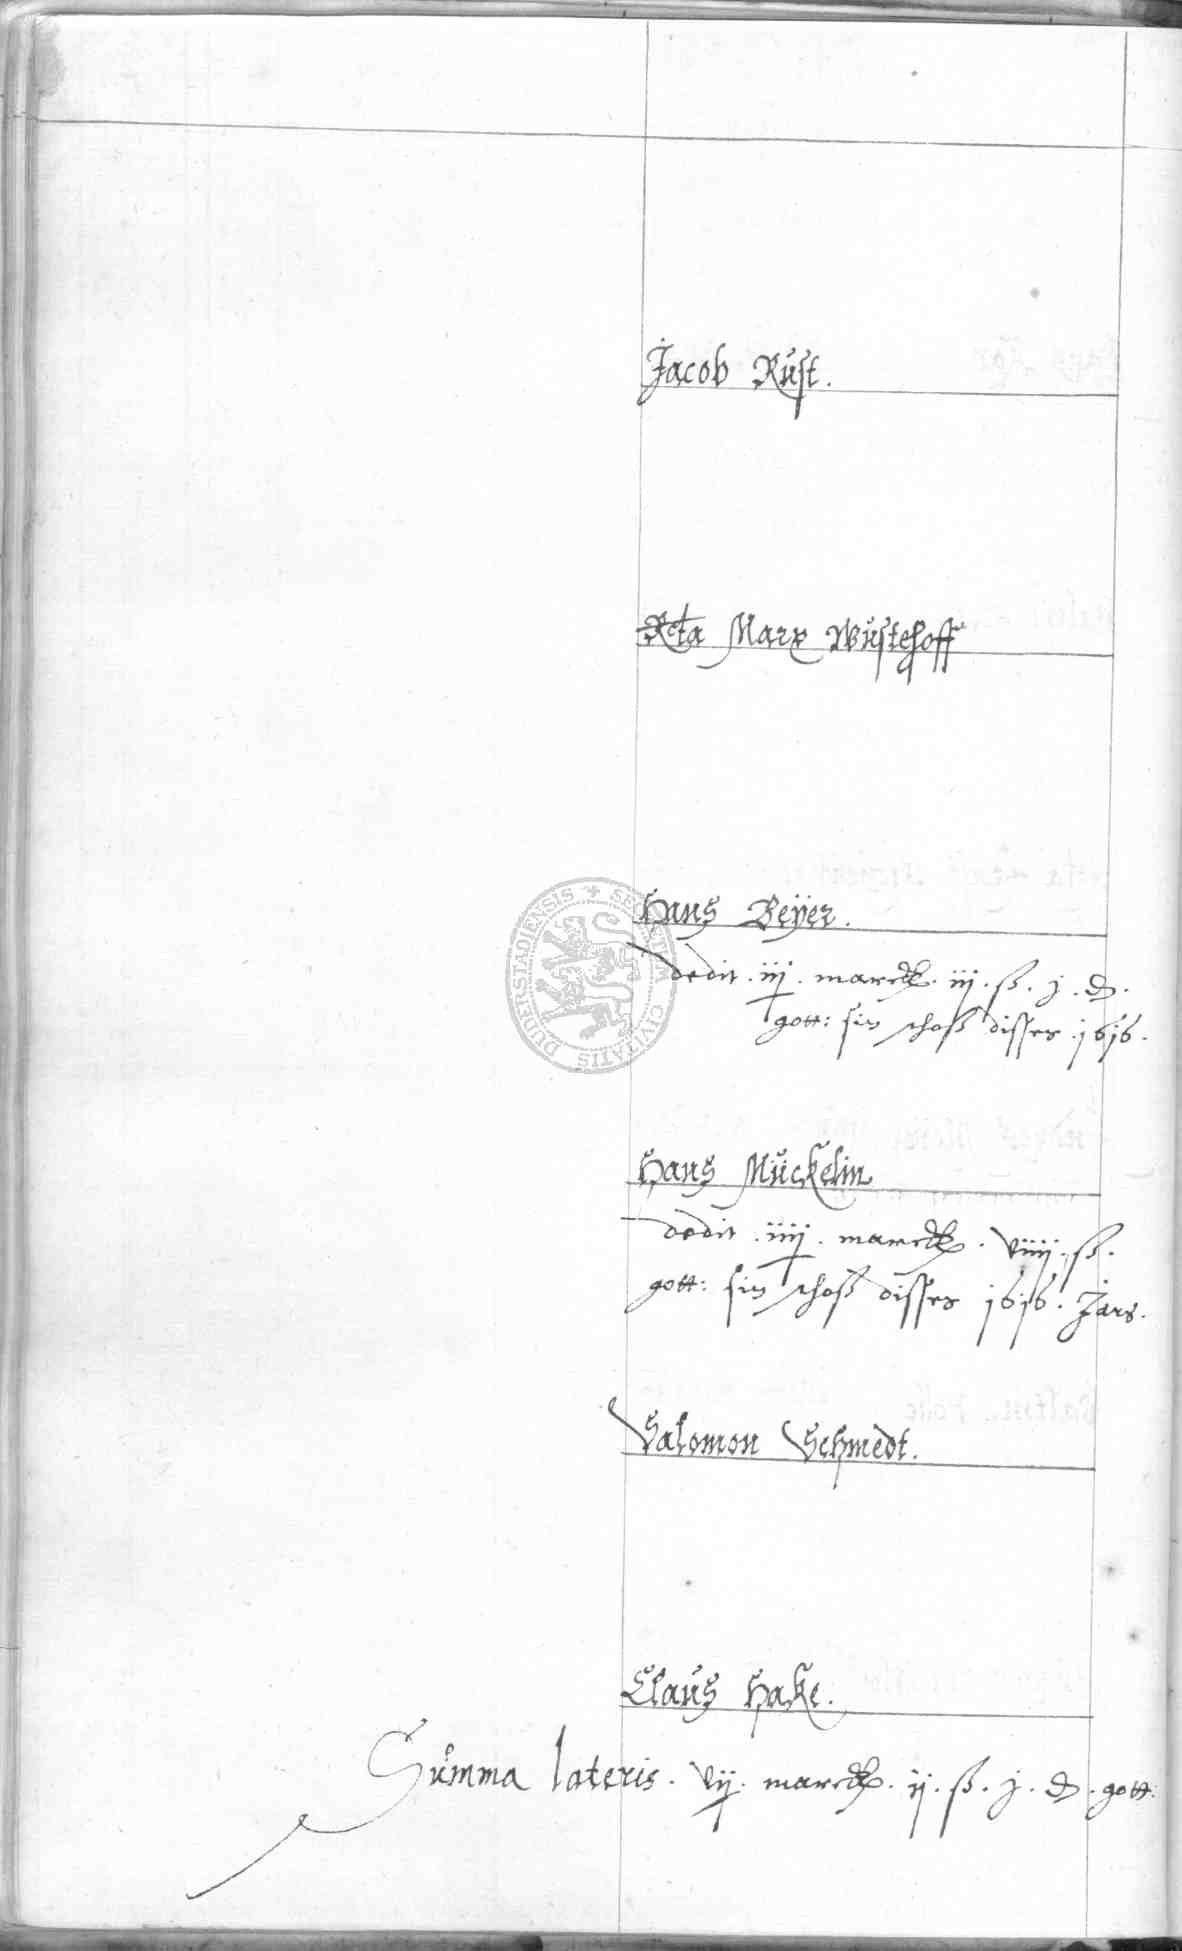 Jacob Rust.
Rcta Marx Wustehoff
Hans Beÿer.
dedit . iij . marck . iij . ß . j . d .
gott: sin schoß disses . 1616 .
Hans Mückelin
dedit . iiij . marck . viiij . ß .
gott: sin schoß disses 1616 . Jars .
Salomon Schmedt .
Claus Hake .
Summa lateris . vij . marck . ij . ß . j . d . gott:
+ SECRETUM CIVITATIS DUDERSTADIENSIS